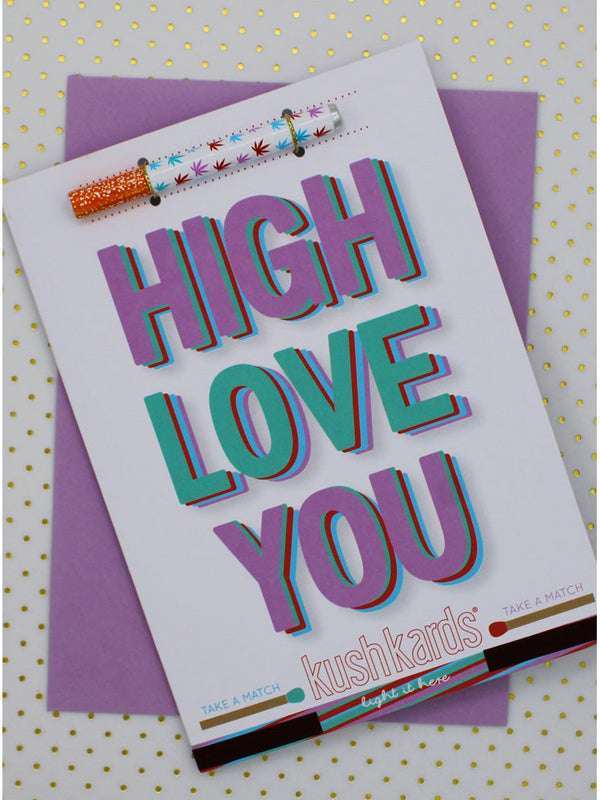 HIGH
LOVE
YOU
kushkards®
TAKE A MATCH
TAKE A MATCH
light it here